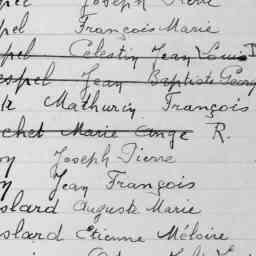 pel Joseph Pierre
pel François Marie
pel Celestin Jean Louis
espel Jean Baptiste Georg
Mathurin François
chet Marie Ange R.
Joseph Pierre
Jean François
slard Auguste Marie
slard Etienne Méloire